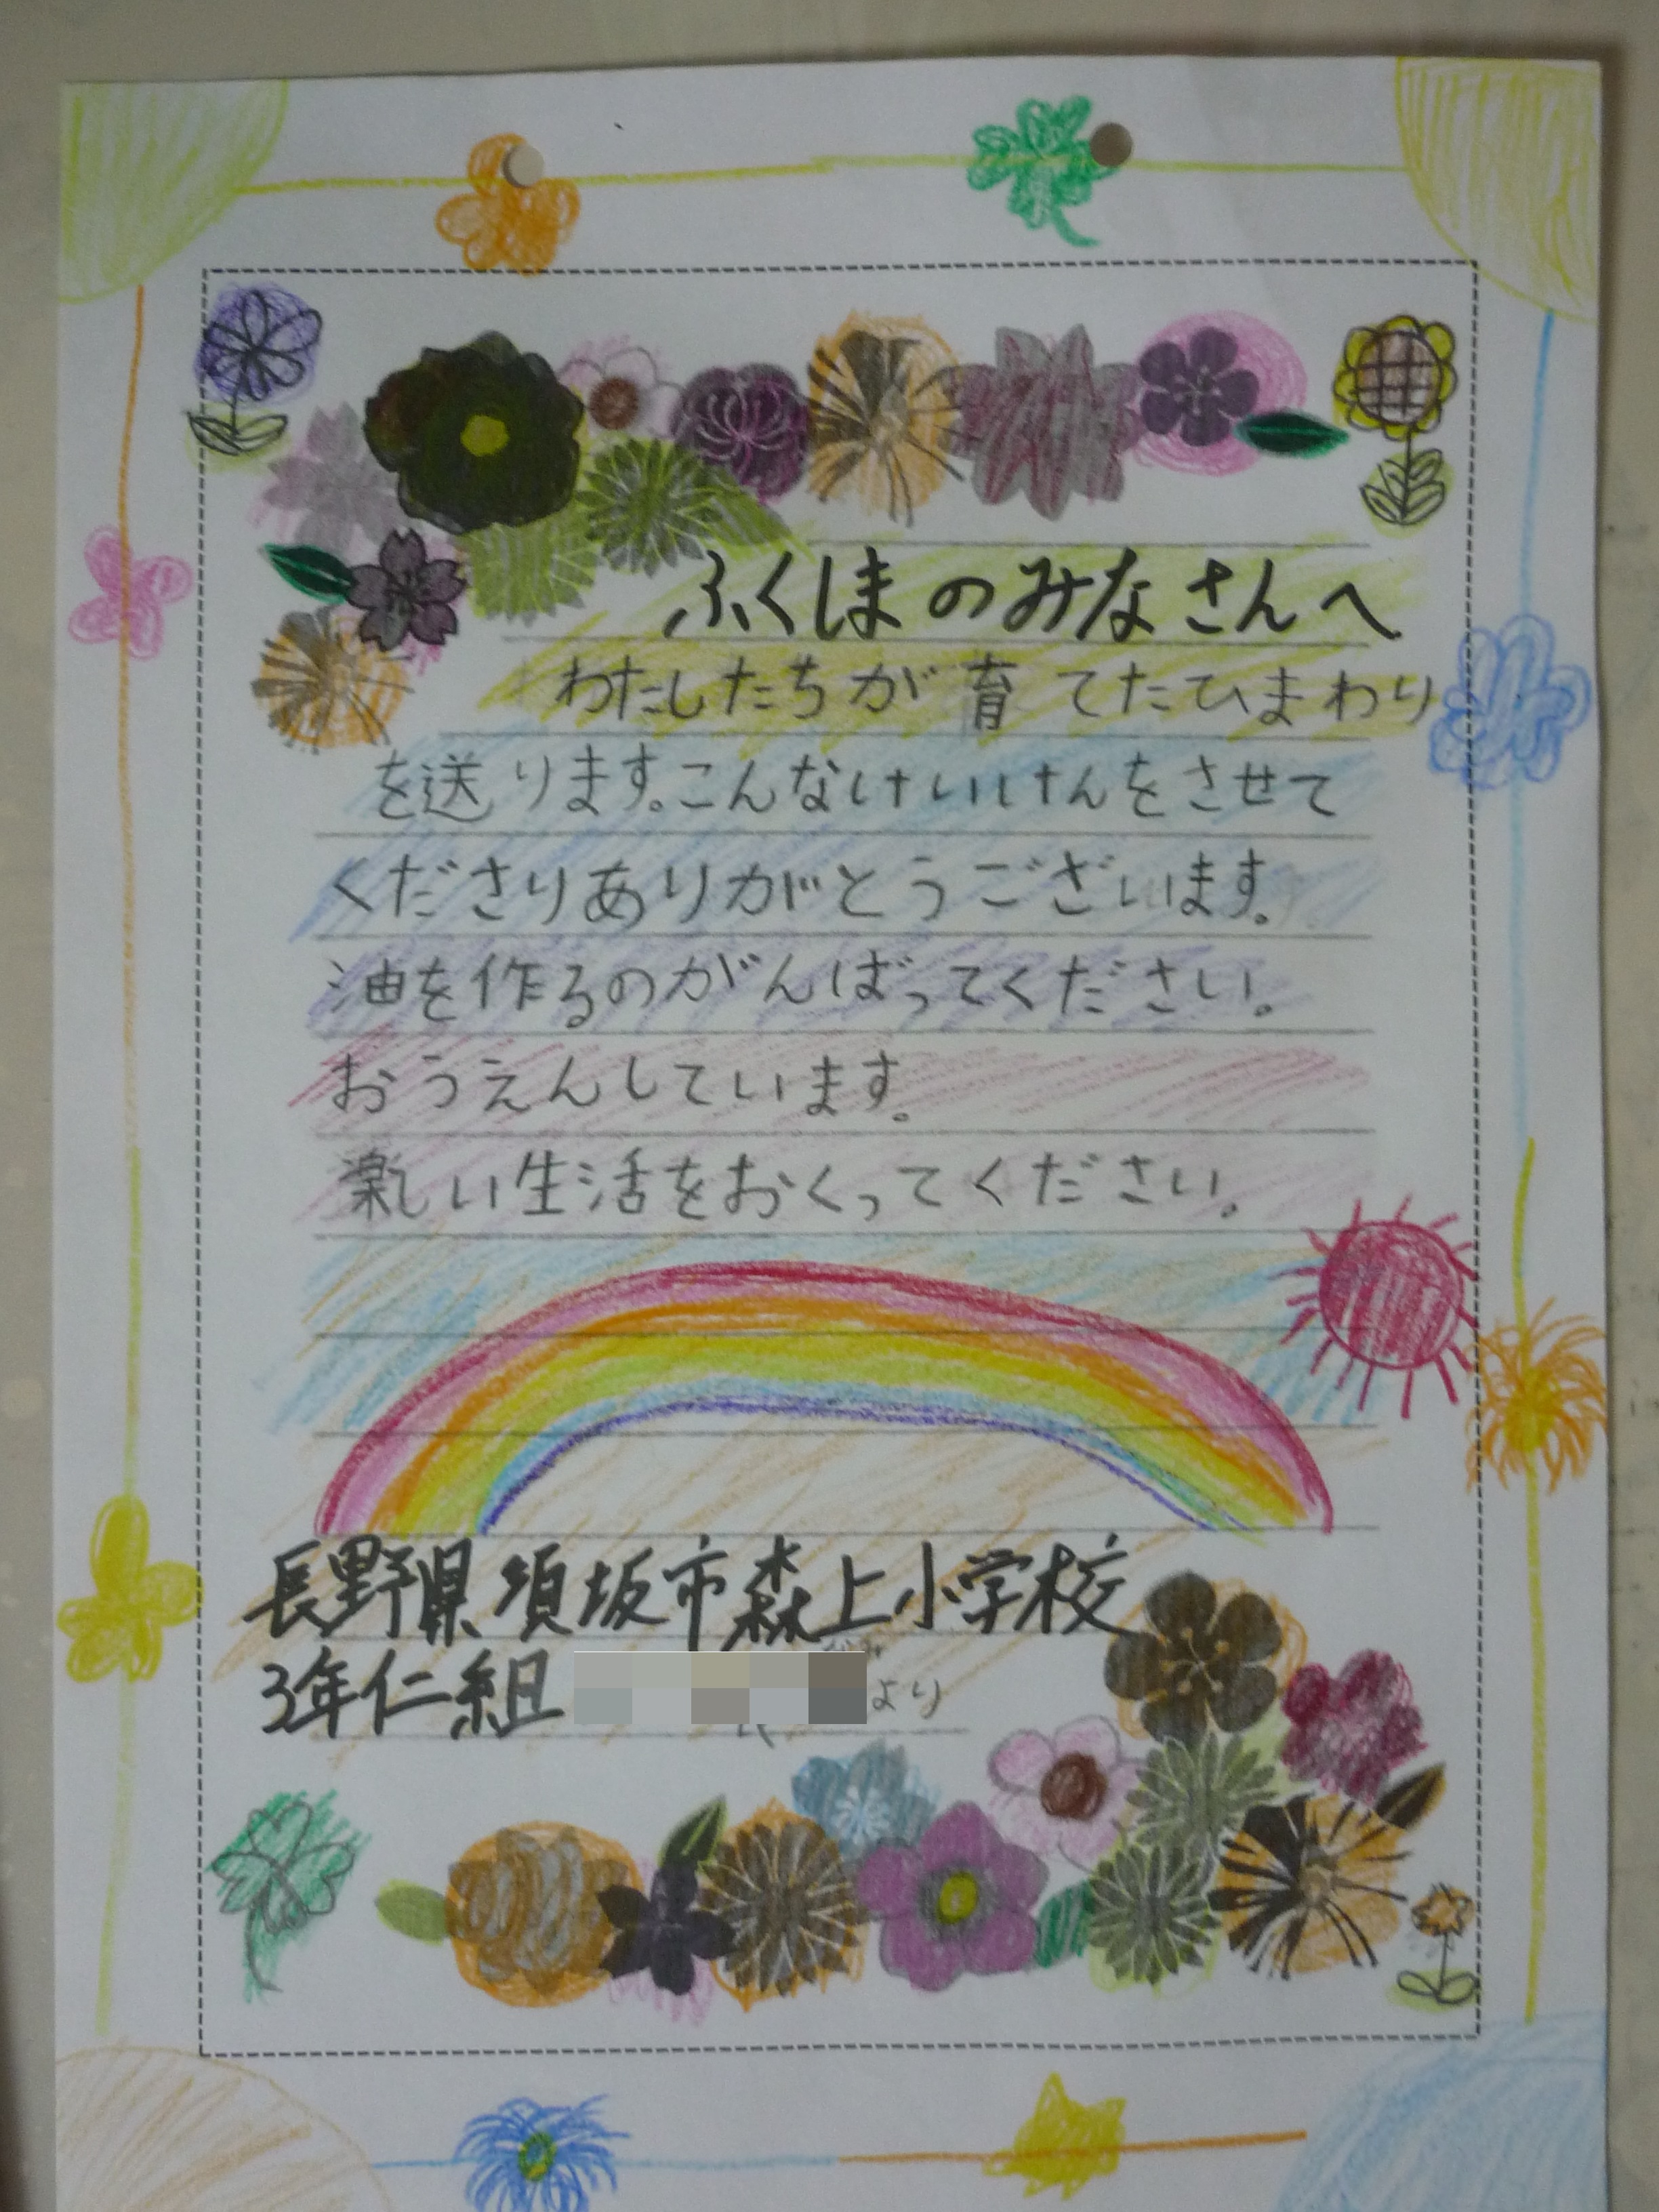 ふくしまのみなさんへ
わたしたちが育てたひまわり
を送ります。こんなけいけんをさせて
くださりありがとうございます。
油を作るのがんばってください。
おうえんしています。
楽しい生活をおくってください。
長野県須坂市森上小学校
3年仁組
より